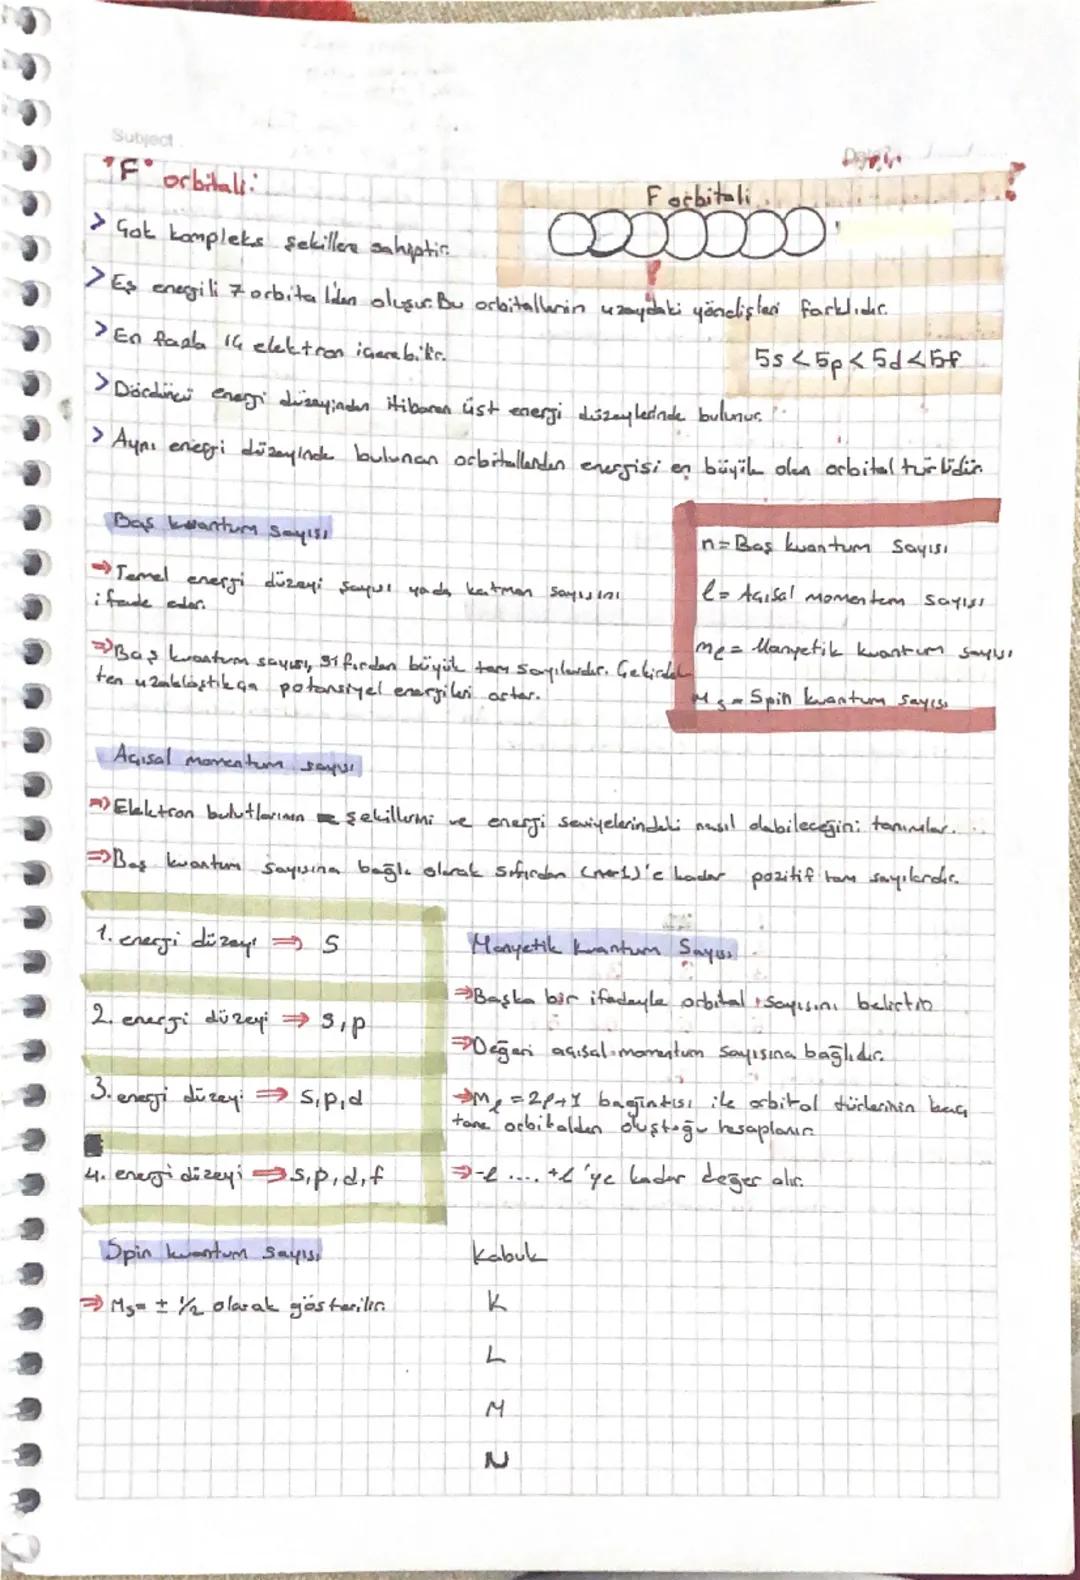 Subject
"F" orbitali:
F orbitali
> Çok kompleks şekillere sahiptir.
> Eş enerjili 7 orbitalden oluşur. Bu orbitallerin uzaydaki yönelişleri farklıdır.
> En fazla 14 elektron içerebilir.
5s < 5p < 5d < 5f
> Dördüncü enerji düzeyinden itibaren üst enerji düzeylerinde bulunur.
> Aynı enerji düzeyinde bulunan orbitallerden enerjisi en büyük olan orbital türüdür.
Baş kuantum sayısı
⇒ Temel enerji düzeyi sayısı yada katman sayısını
ifade eder.
⇒ Baş kuantum sayısı, sıfırdan büyük tam sayılardır. Çekirdek
ten uzaklaştıkça potansiyel enerjileri artar.
n = Baş kuantum sayısı
l = Açısal momentum sayısı
mℓ = Manyetik kuantum sayısı
Ms = Spin kuantum sayısı
Açısal momentum sayısı
⇒ Elektron bulutlarının şekillerini ve enerji seviyelerindeki nasıl olabileceğini tanımlar.
⇒ Baş kuantum sayısına bağlı olarak sıfırdan 'e kadar pozitif tam sayılardır.
1. enerji düzeyi ⇒ s
2. enerji düzeyi ⇒ s, p
3. enerji düzeyi ⇒ s, p, d
4. enerji düzeyi ⇒ s, p, d, f
Manyetik kuantum Sayısı
⇒ Başka bir ifadeyle orbital sayısını belirtir.
⇒ Değeri açısal momentum sayısına bağlıdır.
⇒ Mℓ = 2ℓ+1 bağıntısı ile orbital türlerinin kaç
tane orbitalden oluştuğu hesaplanır.
⇒ -ℓ .... +ℓ 'ye kadar değer alır.
Spin kuantum sayısı
⇒ Ms = ± 1/2 olarak gösterilir.
Kabuk
K
L
M
N